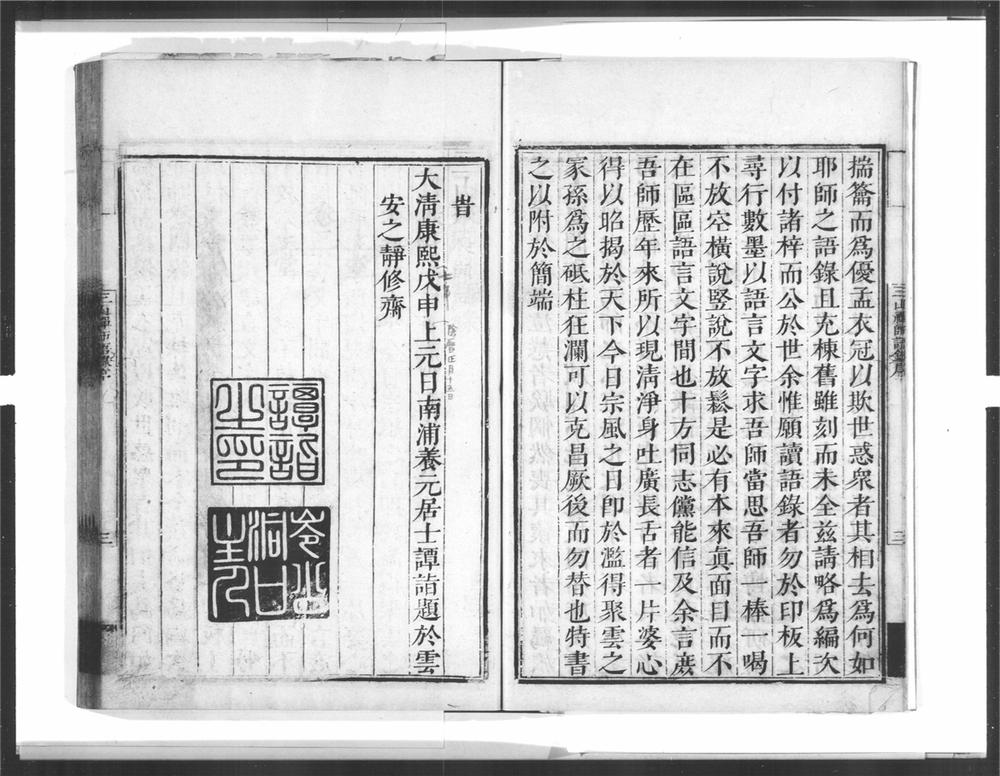 揣籥而爲優孟衣冠以欺世惑衆者其相去爲何如
耶師之語錄且充棟舊雖刻而未全玆請略爲編次
以付諸梓而公於世余惟願讀語錄者勿於印板上
尋行數墨以語言文字求吾師當思吾師一棒一喝
不放空橫說竪說不放鬆是必有本來眞面目而不
在區區語言文字間也十方同志儻能信及余言庶
吾師歷年來所以現淸淨身吐廣長舌者一片婆心
得以昭揭於天下今日宗風之日卽於濫得聚雲之
冢孫爲之砥柱狂瀾可以克昌厥後而勿替也特書
之以附於簡端
旹
大淸康熙戊申上元日南浦養元居士譚詣題於雲
安之靜修齋
譚詣之印
三山禪師語錄序
三
三